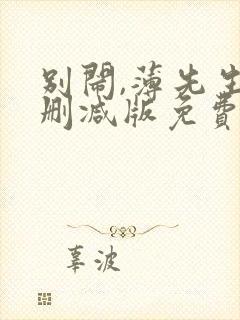 别鬧,薄先生
删减版免費
辜波